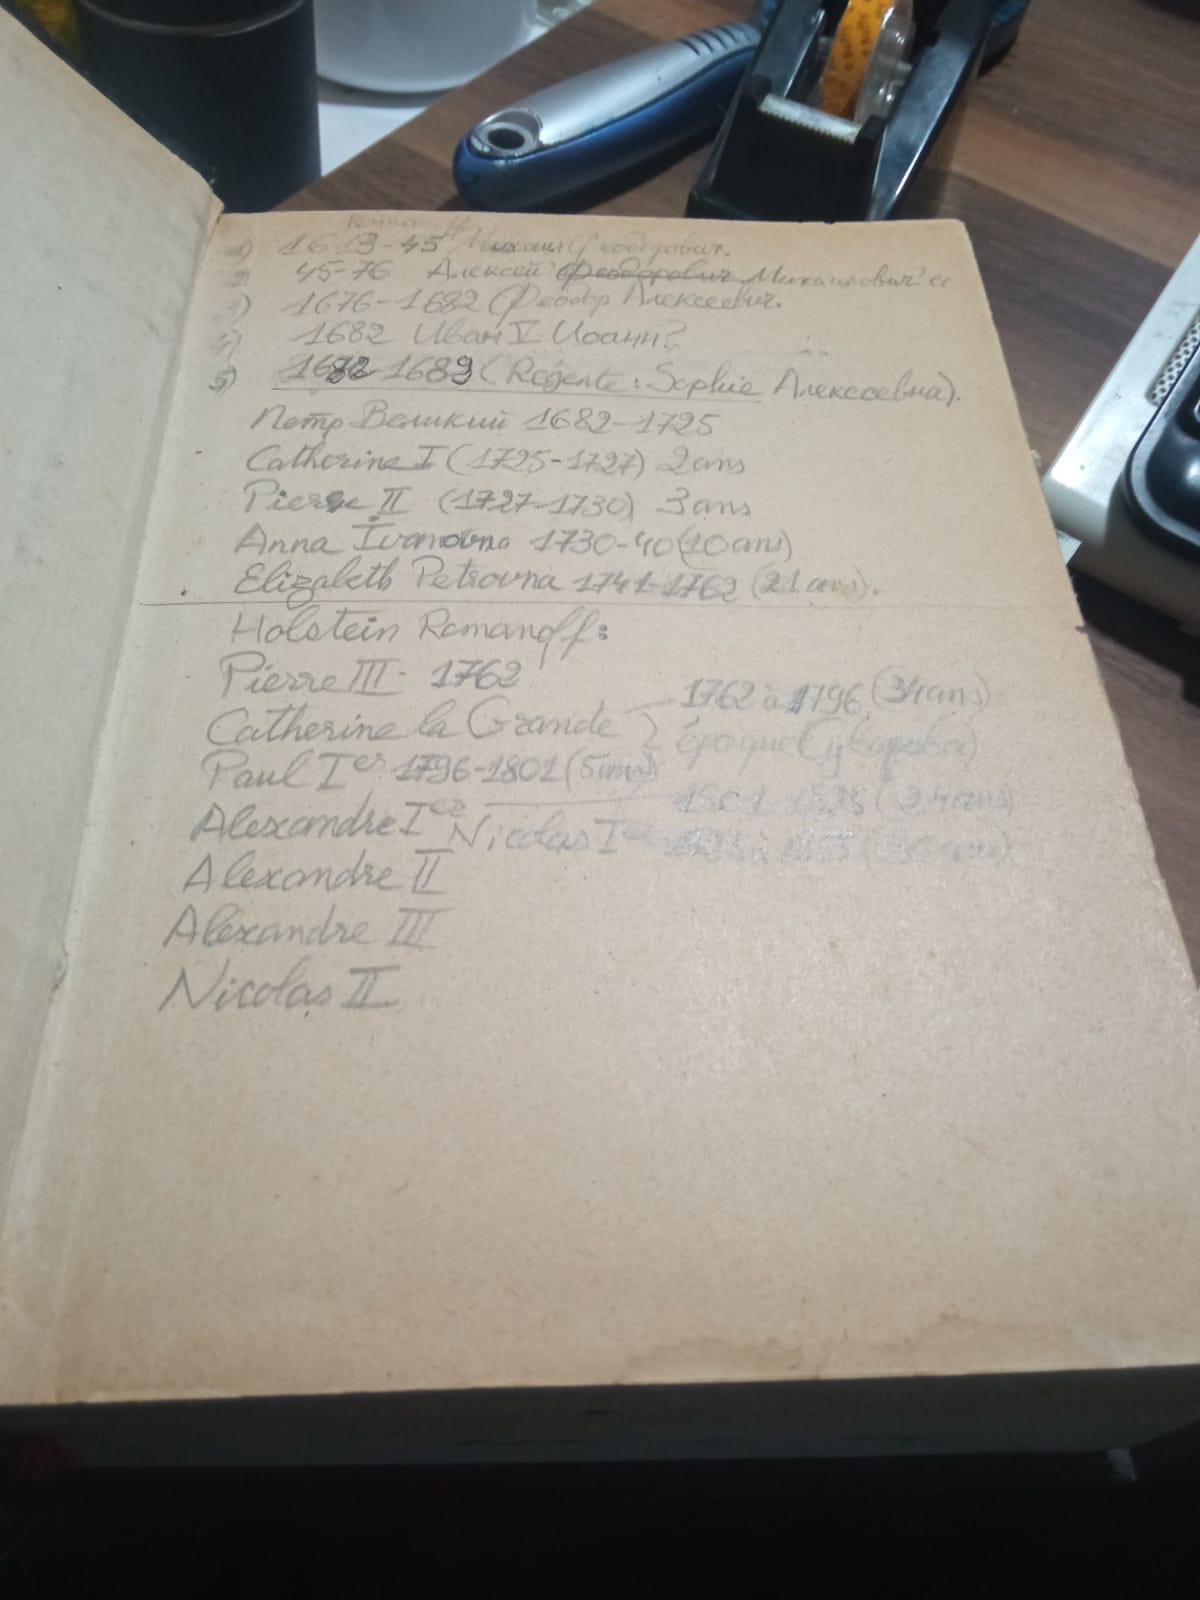 Romanoff
1) 1613-45 Михаил Феодорович.
2 45-76 Алексей Феодорович Михаилович
3) 1676-1682 Феодор Алексеевич.
4) 1682 Иван V Иоанн?
5) 1682-1689 (Régente: Sophie Алексеевна).
Петр Великий 1682-1725
Catherine I (1725-1727) 2 ans
Pierre II (1727-1730) 3 ans
Anna Ivanovna 1730-40 (10 ans)
Elizabeth Petrovna 1741-1762 (21 ans).
Holstein Romanoff:
Pierre III - 1762
Catherine la Grande } 1762 à 1796 (34 ans)
époque
Paul Ier 1796-1801 (5 ans)
Alexandre Ier 1801-1825 (24 ans)
Nicolas Ier 1825 à 1855 (30 ans)
Alexandre II
Alexandre III
Nicolas II